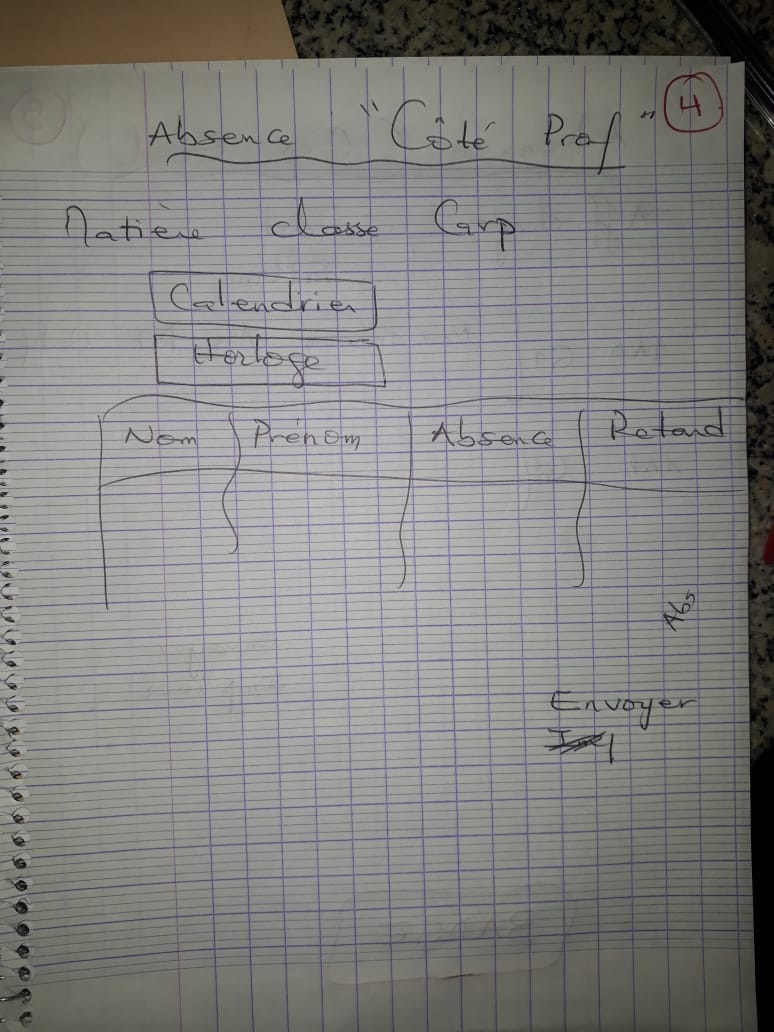 Absence "Côté Prof" 4
Matière classe Carp
Calendrier
Horloge
Nom Prénom Absence Retard
Abs
Envoyer